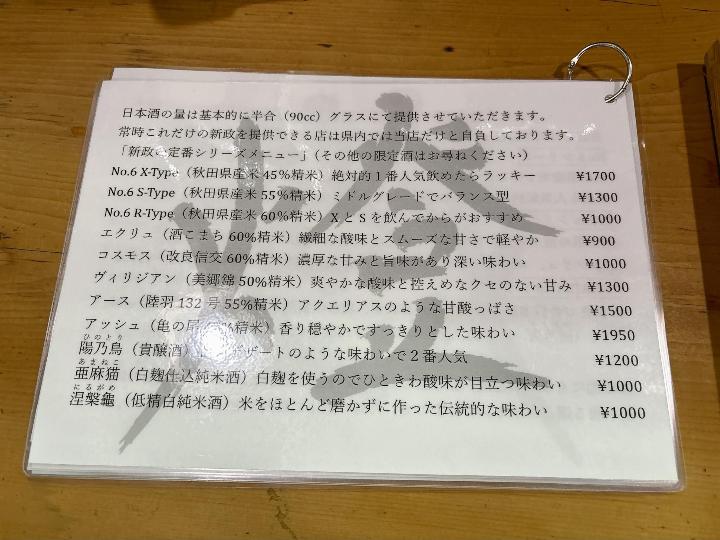 日本酒の量は基本的に半合（90cc）グラスにて提供させていただきます。
常時これだけの新政を提供できる店は県内では当店だけと自負しております。
「新政の定番シリーズメニュー」（その他の限定酒はお尋ねください）
No.6 X-Type（秋田県産米 45％精米）絶対的１番人気飲めたらラッキー ¥1700
No.6 S-Type（秋田県産米 55％精米）ミドルグレードでバランス型 ¥1300
No.6 R-Type（秋田県産米 60％精米）X と S を飲んでからがおすすめ ¥1000
エクリュ（酒こまち 60％精米）繊細な酸味とスムーズな甘さで軽やか ¥900
コスモス（改良信交 60％精米）濃厚な甘みと旨味があり深い味わい ¥1000
ヴィリジアン（美郷錦 50％精米）爽やかな酸味と控えめなクセのない甘み ¥1300
アース（陸羽 132 号 55％精米）アクエリアスのような甘酸っぱさ ¥1500
アッシュ（亀の尾 ％精米）香り穏やかですっきりとした味わい ¥1950
ひのとり
陽乃鳥（貴醸酒）デザートのような味わいで２番人気 ¥1200
あまねこ
亜麻猫（白麹仕込純米酒）白麹を使うのでひときわ酸味が目立つ味わい ¥1000
にるがめ
涅槃龜（低精白純米酒）米をほとんど磨かずに作った伝統的な味わい ¥1000